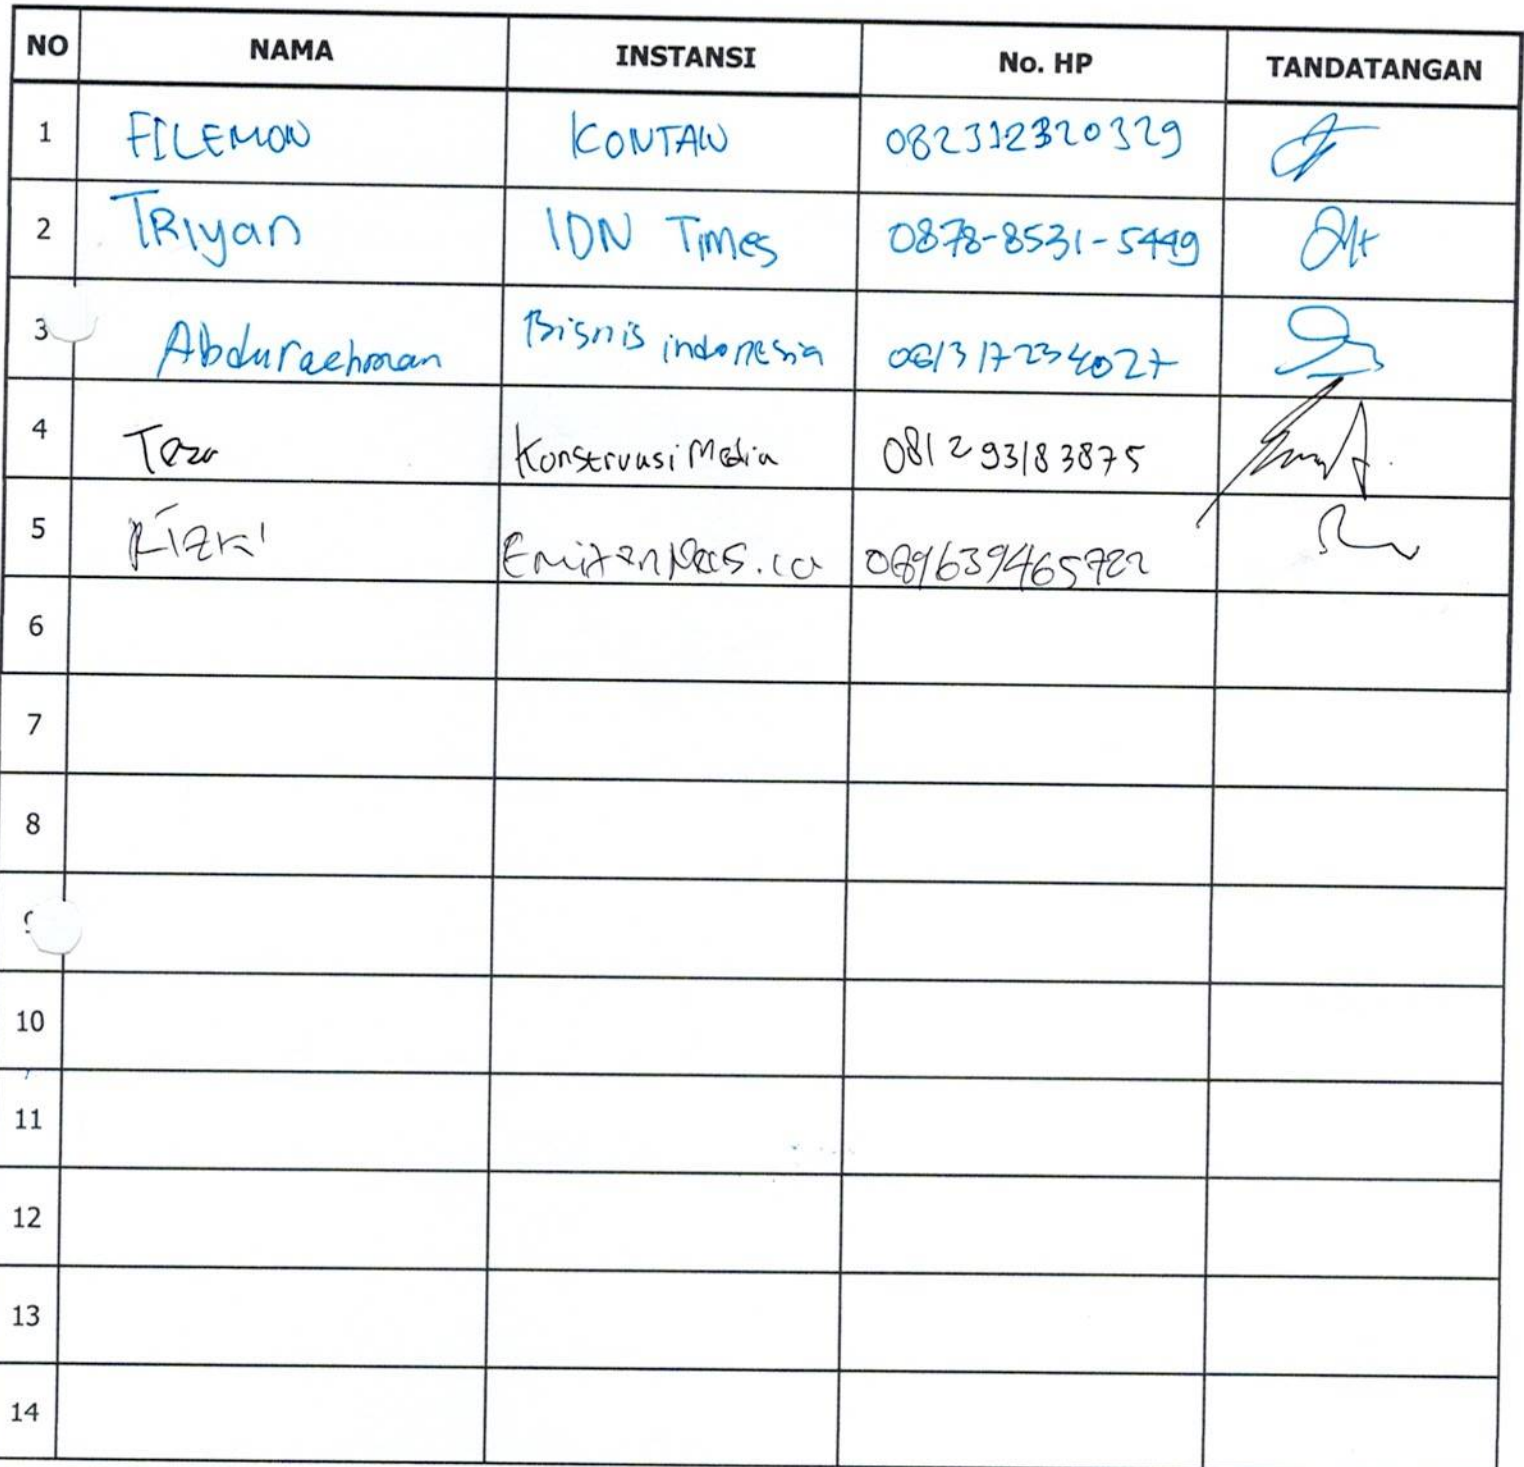 NO NAMA INSTANSI No. HP TANDATANGAN
1 FILEMON KONTAN 082312320329
2 TRIyan IDN Times 0878-8531-5449
3 Abduraehman Bisnis indonesia 081317234027
4 081293183875
5 Rizki 089639465722
6
7
8
9
10
11
12
13
14